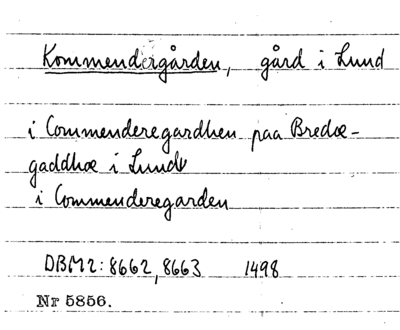 Kommendörgården, gård i Lund
i Commenderegardhen paa Bredæ-
gaddhæ i Lund
i Commenderegarden
DBM2: 8662, 8663 1498
Nr 5856.